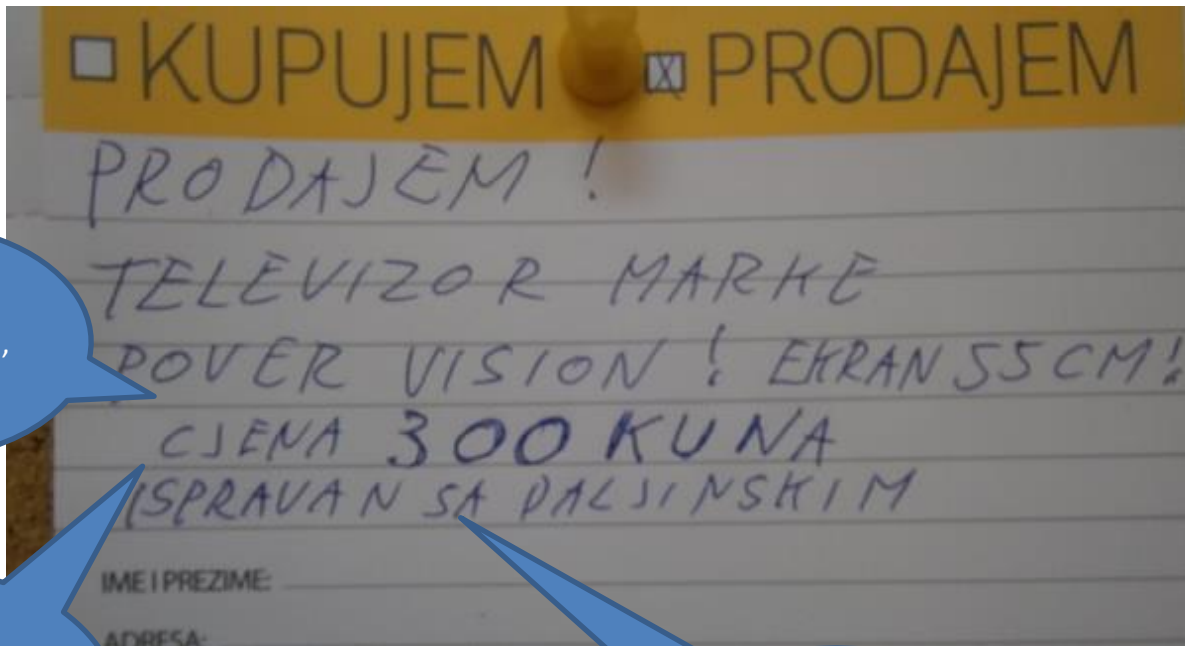 KUPUJEM PRODAJEM
PRODAJEM !
TELEVIZOR MARKE
POVER VISION ! EKRAN 55 CM!
CJENA 300 KUNA
ISPRAVAN SA DALJINSKIM
IME I PREZIME:
ADRESA: